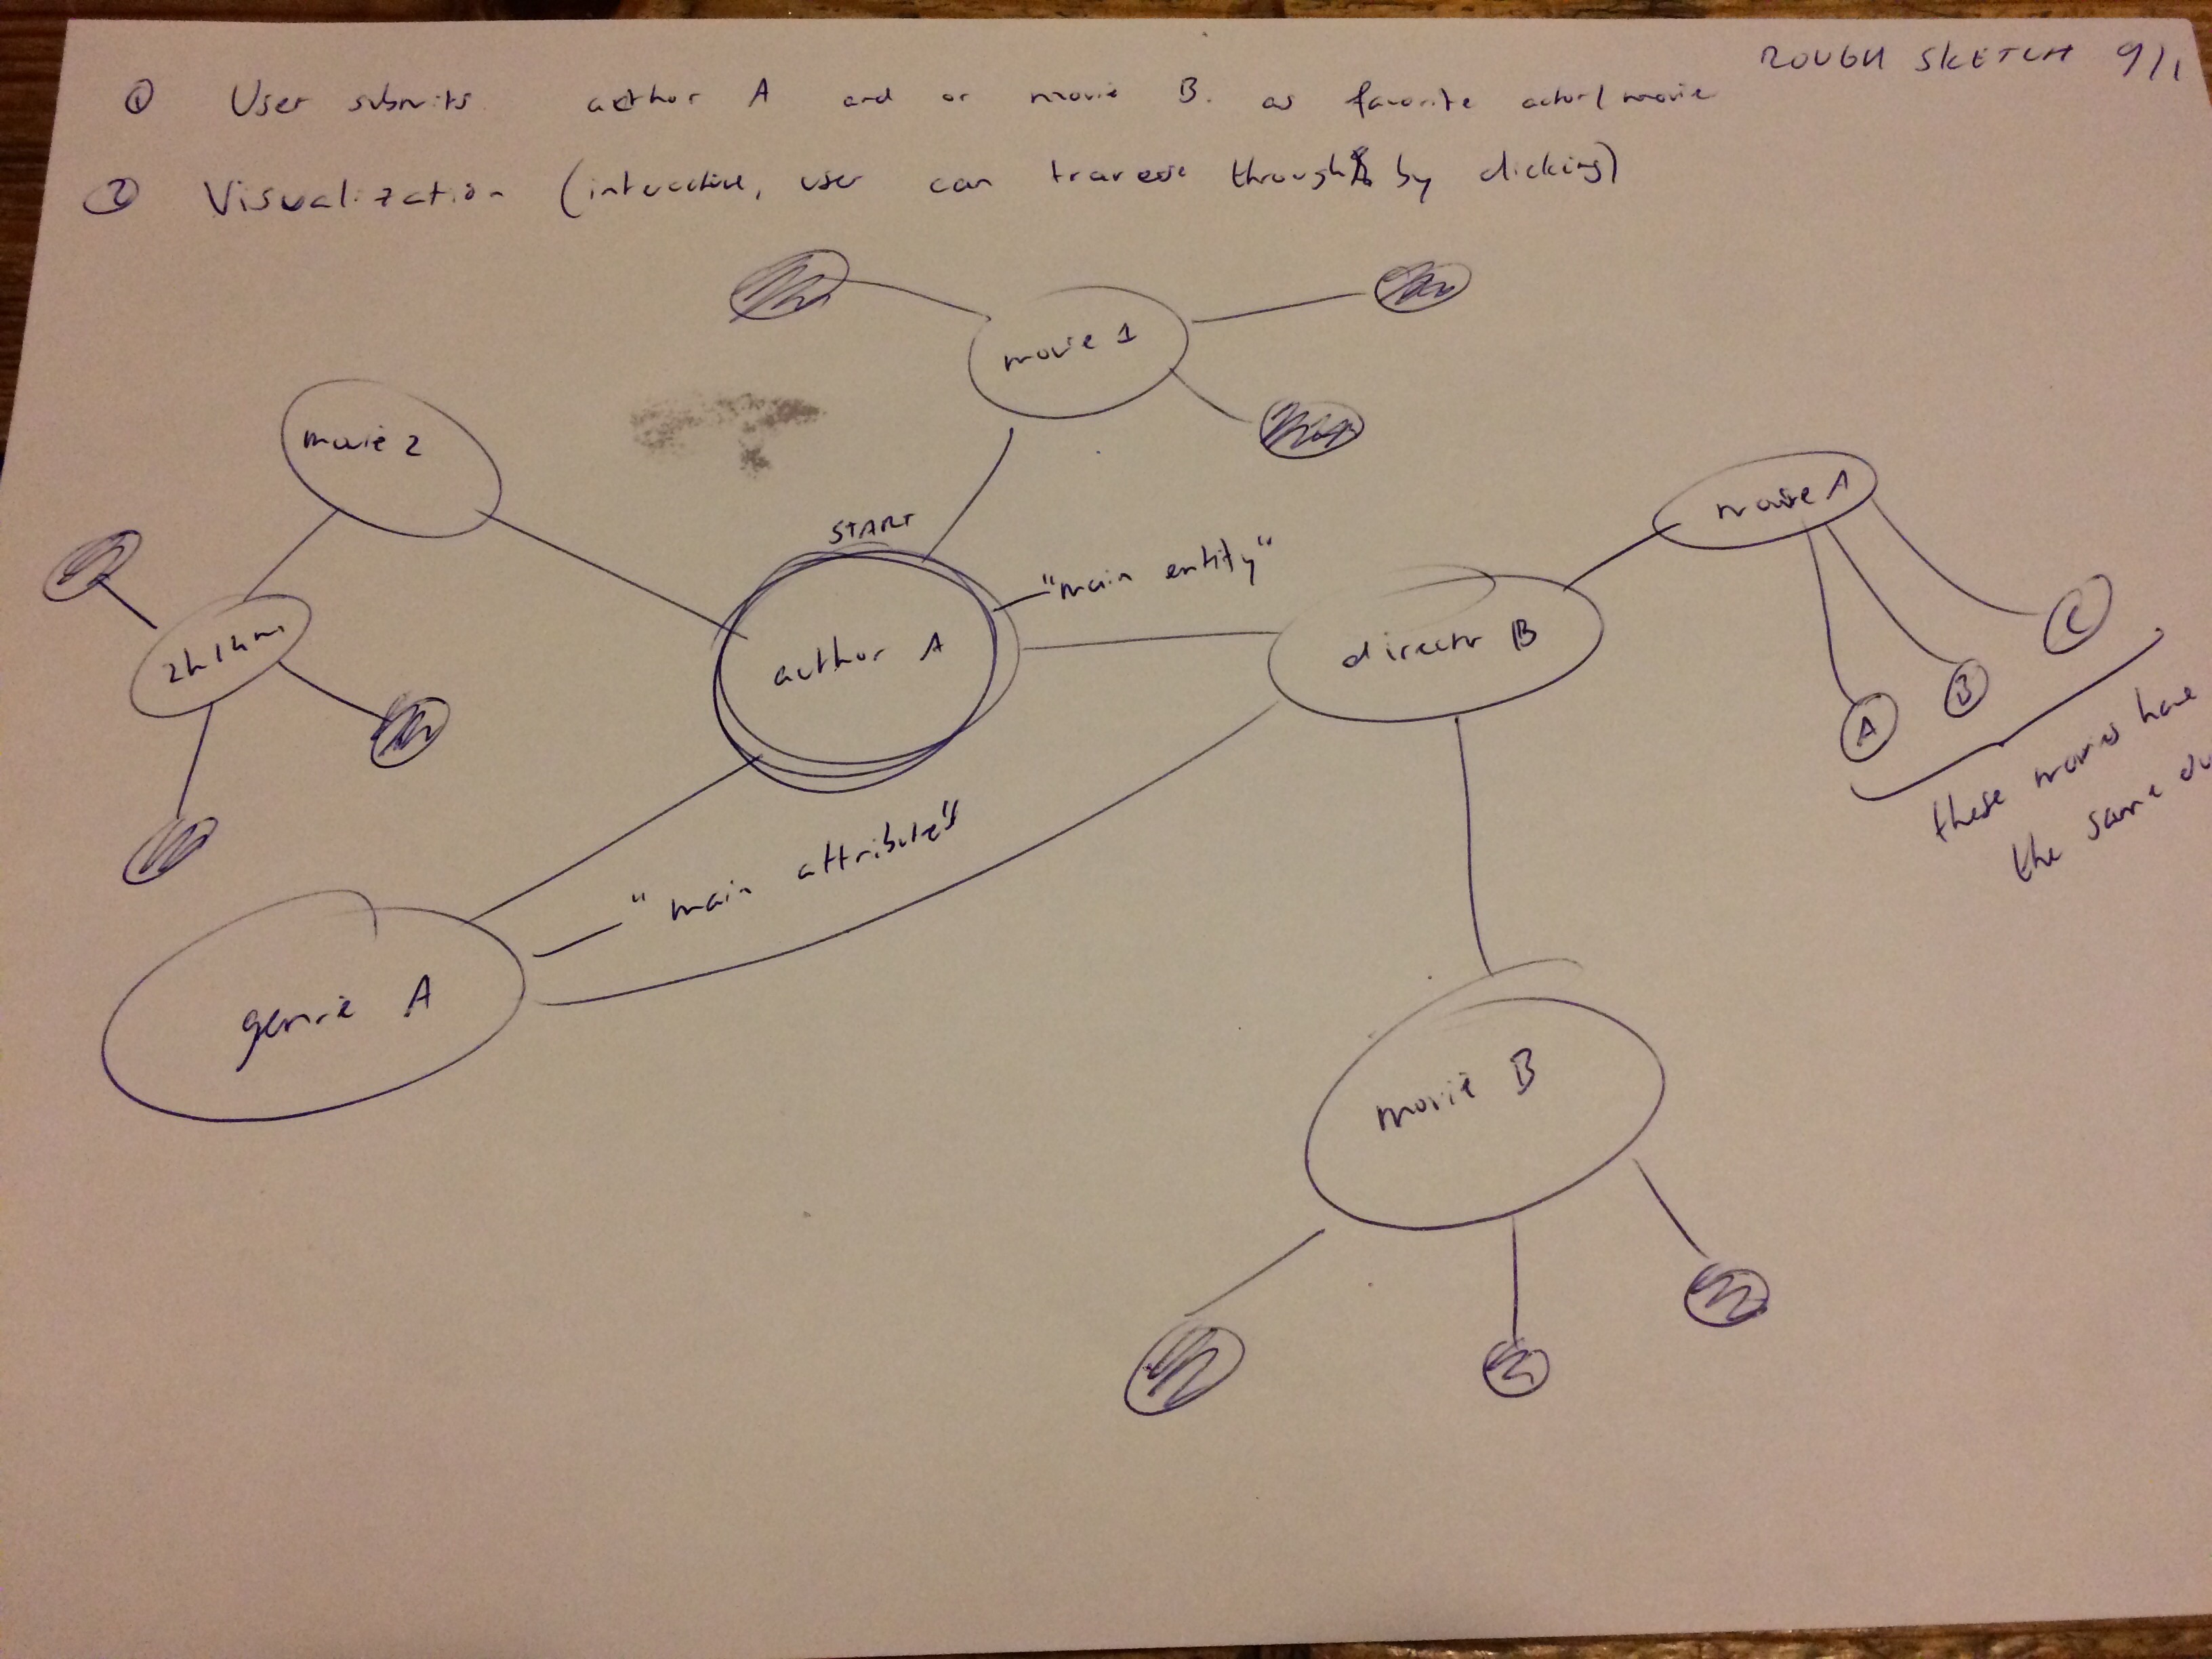 ROUGH SKETCH 9/1
① User submits author A and or movie B. as favorite actor/movie
② Visualization (interactive, user can traverse through by clicking)
movie 1
movie 2
START
movie A
"main entity"
author A
director B
2h14m
A
B
C
these movies have
the same du
"main attributes"
genre A
movie B